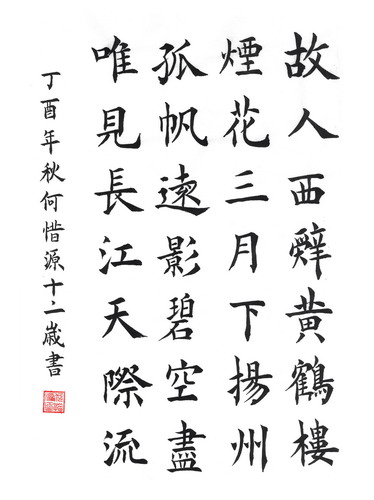 故人西辤黄鶴樓
煙花三月下揚州
孤帆遠影碧空盡
唯見長江天際流
丁酉年秋何惜源十二歳書